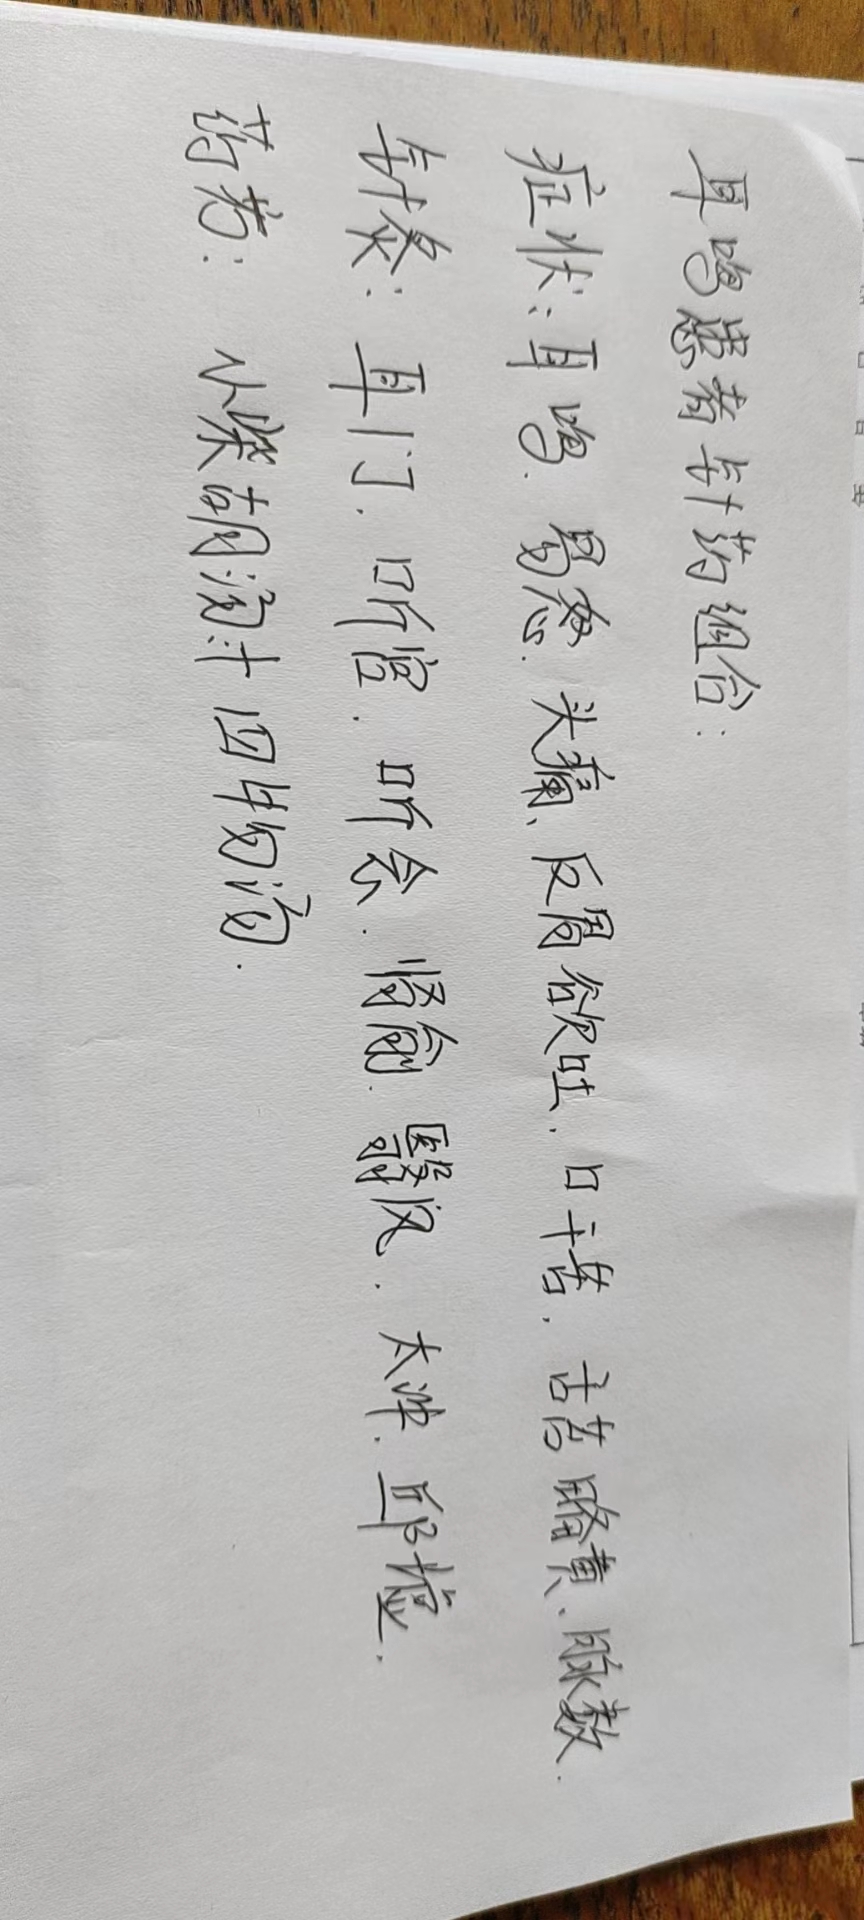 耳鸣患者针药组合:
症状:耳鸣.易怒.头痛、反胃欲吐.口干苦.舌苔略黄、脉数.
针灸:耳门.听宫.听会.肾俞.翳风.太冲.邱墟.
药方:小柴胡汤汁四物汤.